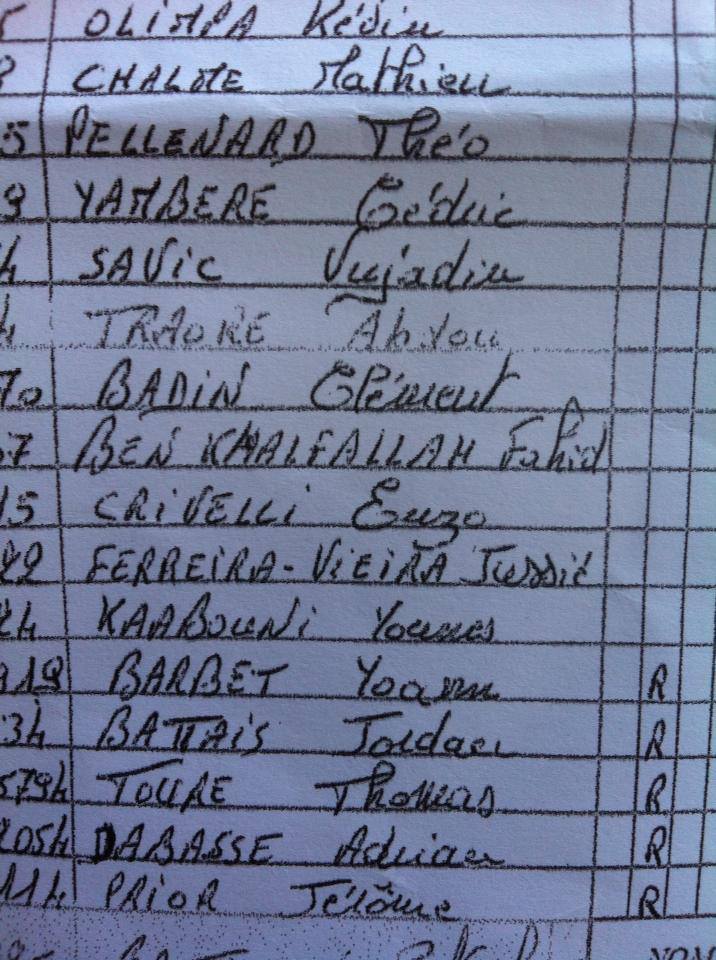 5 OLIMPA Kévin
8 CHALME Mathieu
5 PELLENARD Théo
9 YAMBERE Cédric
h SAVIC Vujadin
h TRAORE Abdou
70 BADIN Clément
57 BEN KHALFALLAH Fahid
15 CRIVELLI Enzo
92 FERREIRA-VIEIRA Jussiê
2h KAABOUNI Younes
919 BARBET Yoann R
3h BATTAIS Jordaen R
579h TOURE Thomas R
205h DABASSE Adrian R
11h PRIOR Jérôme R